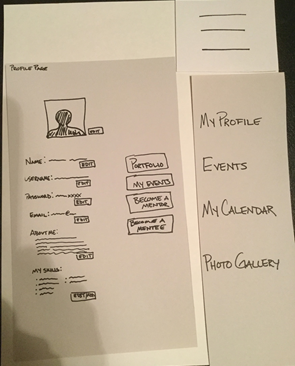 Profile Page
Edit
Name:
Edit
Username:
Edit
Password: xxxx
Edit
Email:
Edit
About Me:
Edit
My Skills:
Portfolio
My Events
Become a
Mentor
Become a
Mentee
My Profile
Events
My Calendar
Photo Gallery